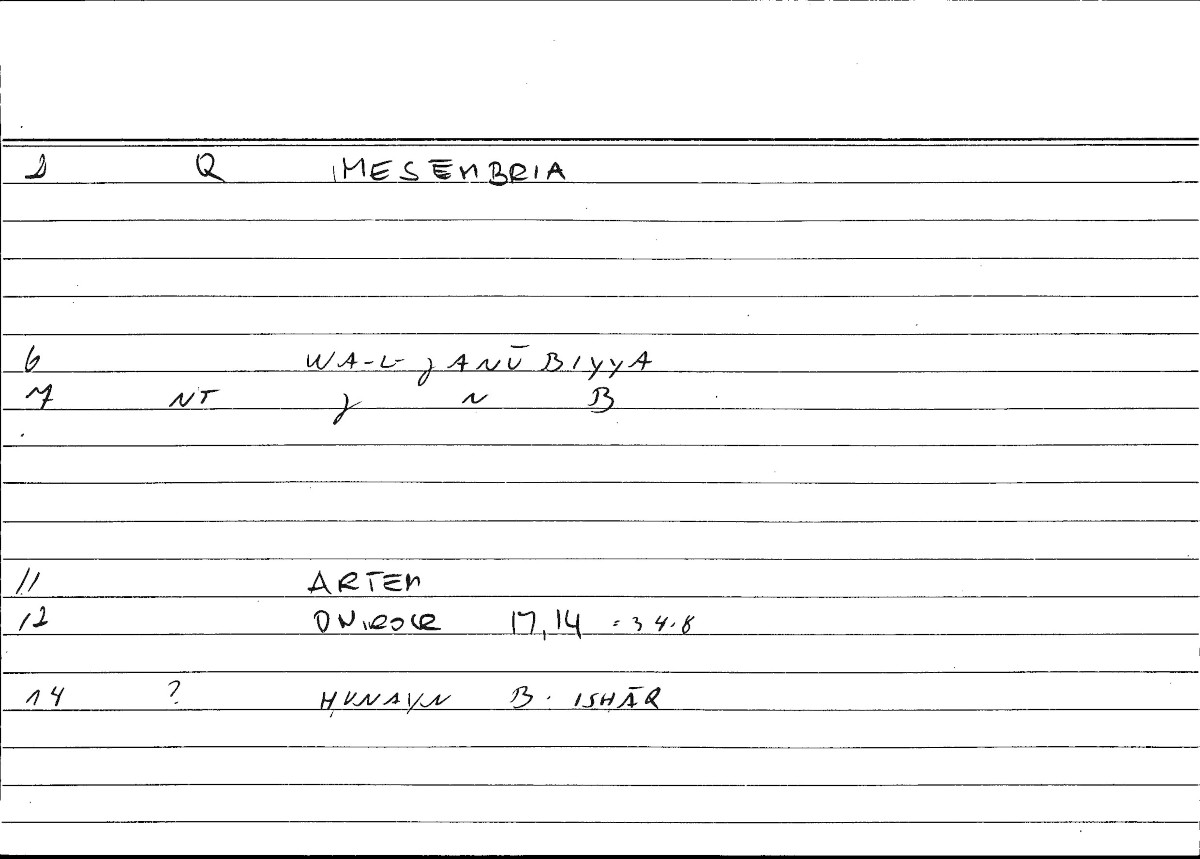 1 Q MESEMBRIA
6 WA-L-JANŪBIYYA
7 NT J N B
11 ARTEM
12 ONIROCR 17,14 = 34.8
14 ? ḤUNAYN B. ISḤĀQ